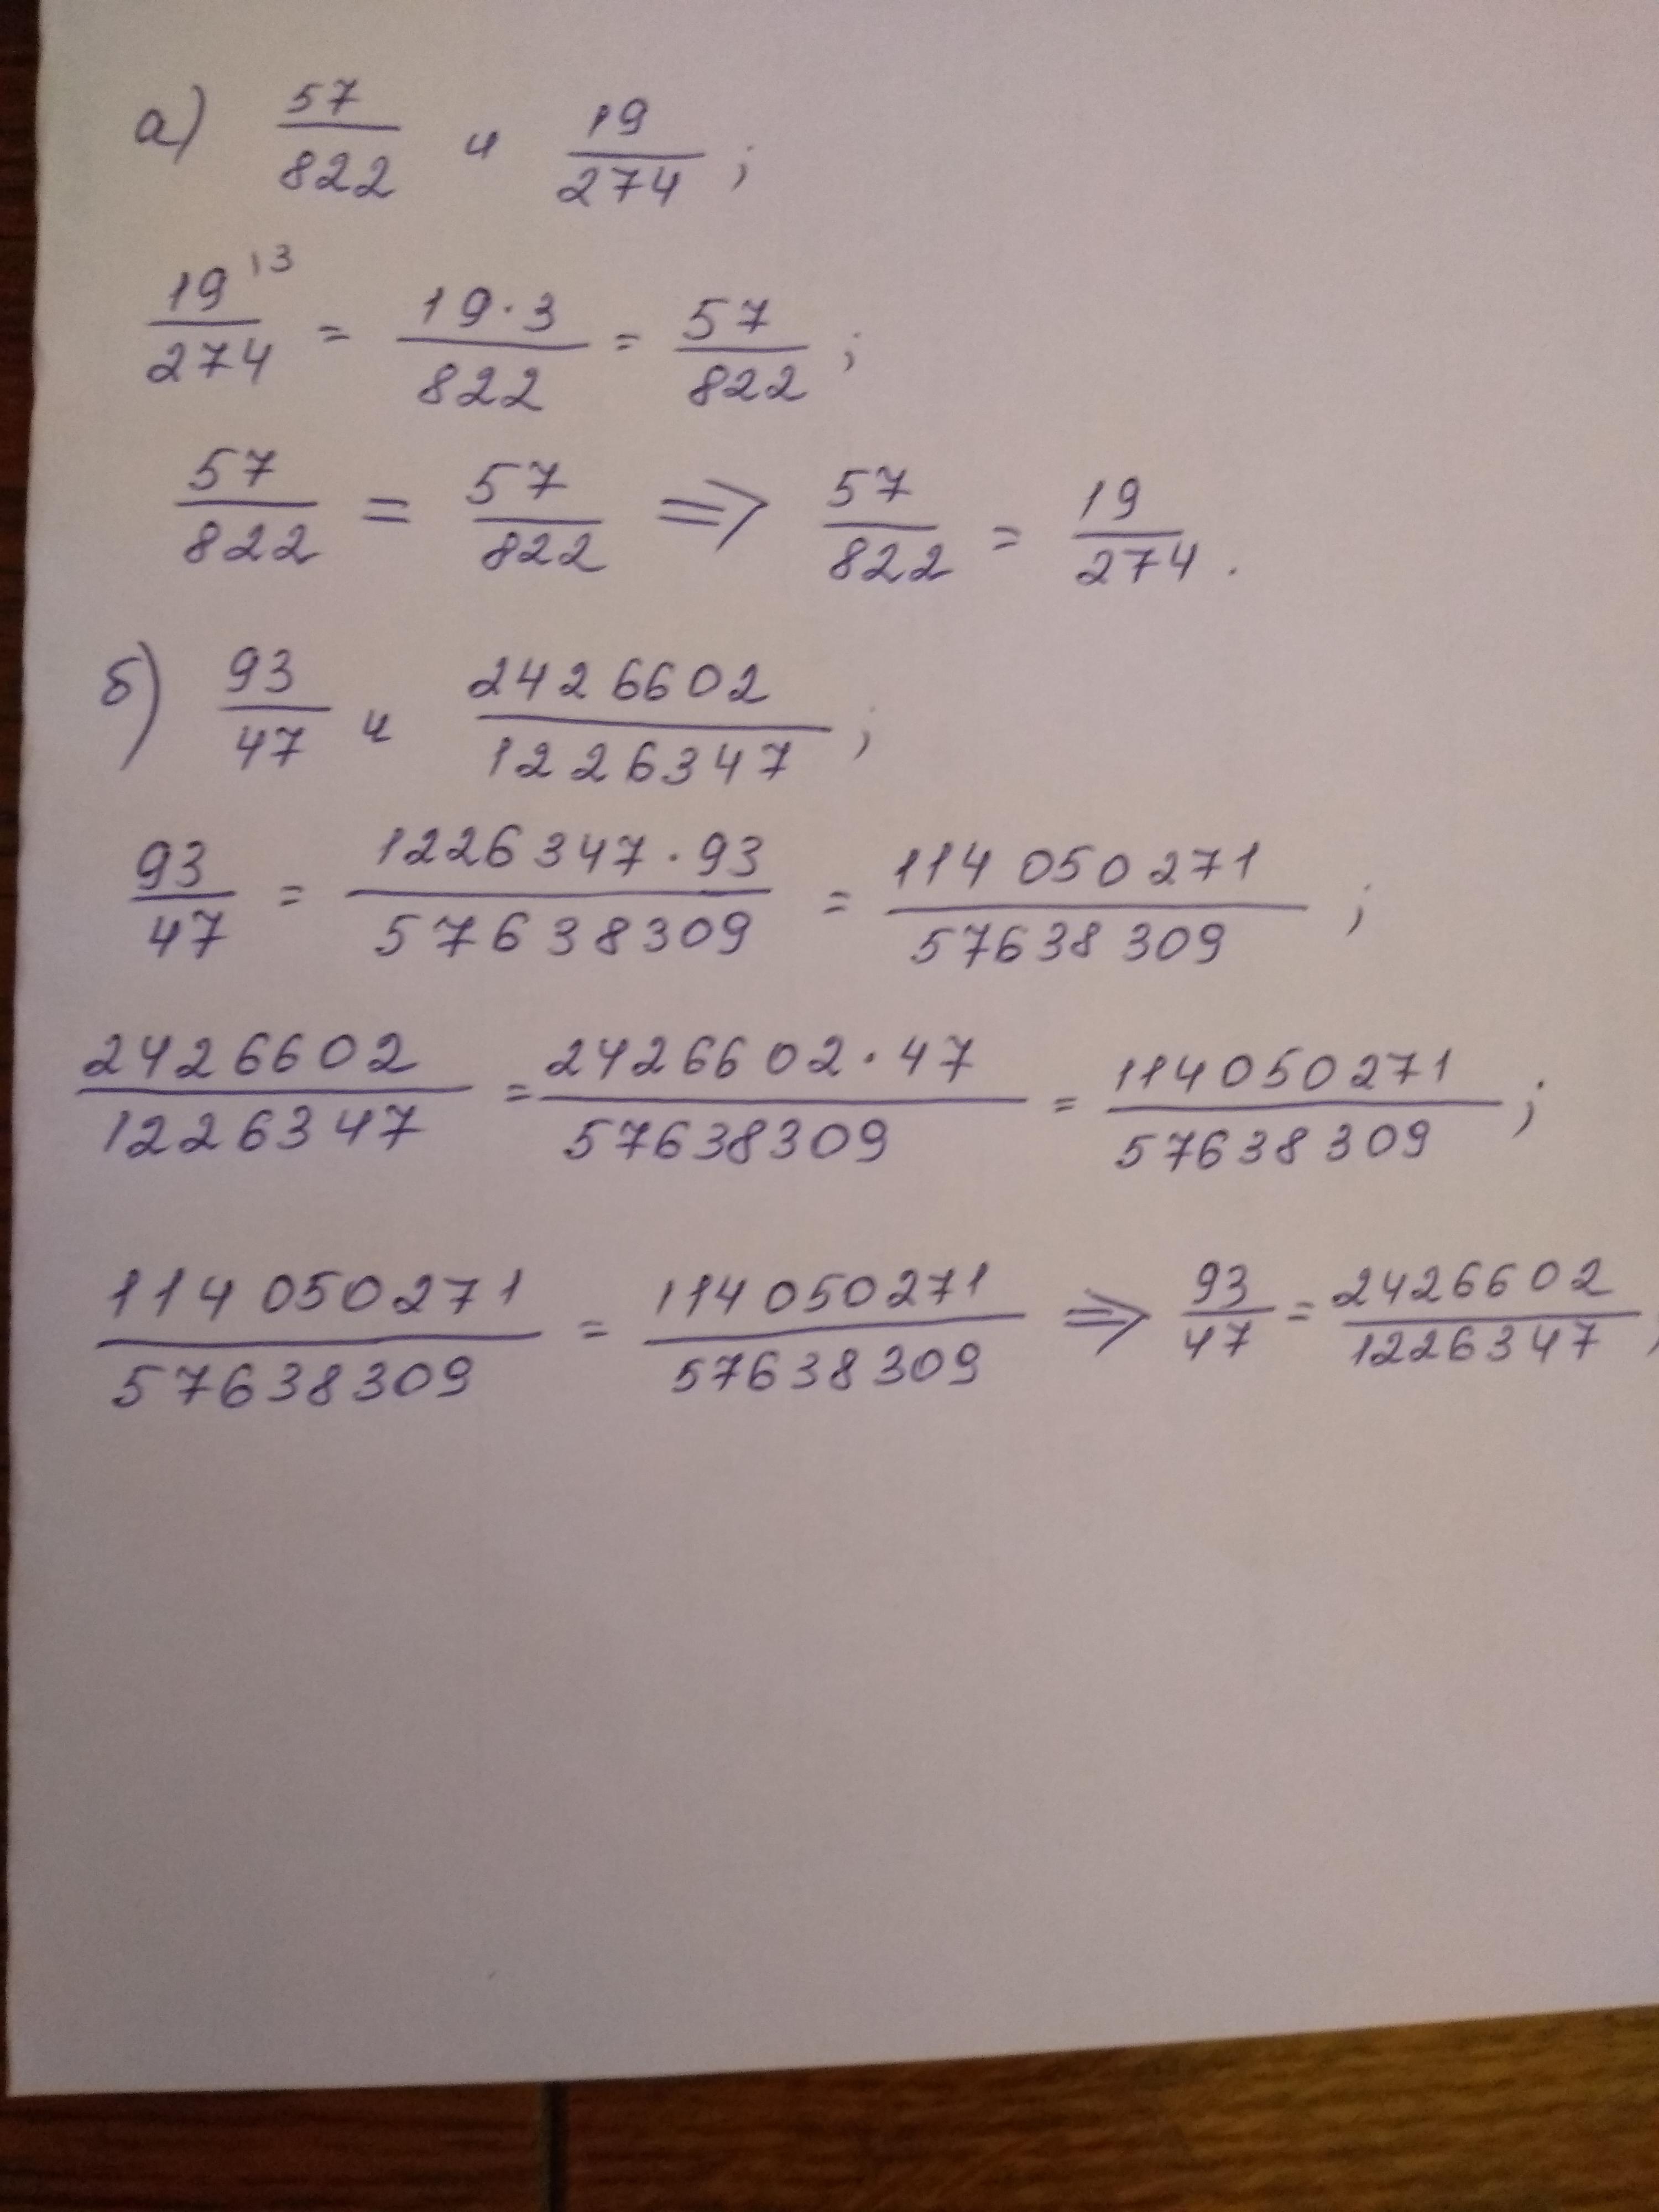 а) 57/822 и 19/274;
19\3/274 = 19·3/822 = 57/822;
57/822 = 57/822 ⇒ 57/822 = 19/274.
б) 93/47 и 2426602/1226347;
93/47 = 1226347·93/57638309 = 114050271/57638309;
2426602/1226347 = 2426602·47/57638309 = 114050271/57638309;
114050271/57638309 = 114050271/57638309 ⇒ 93/47 = 2426602/1226347,